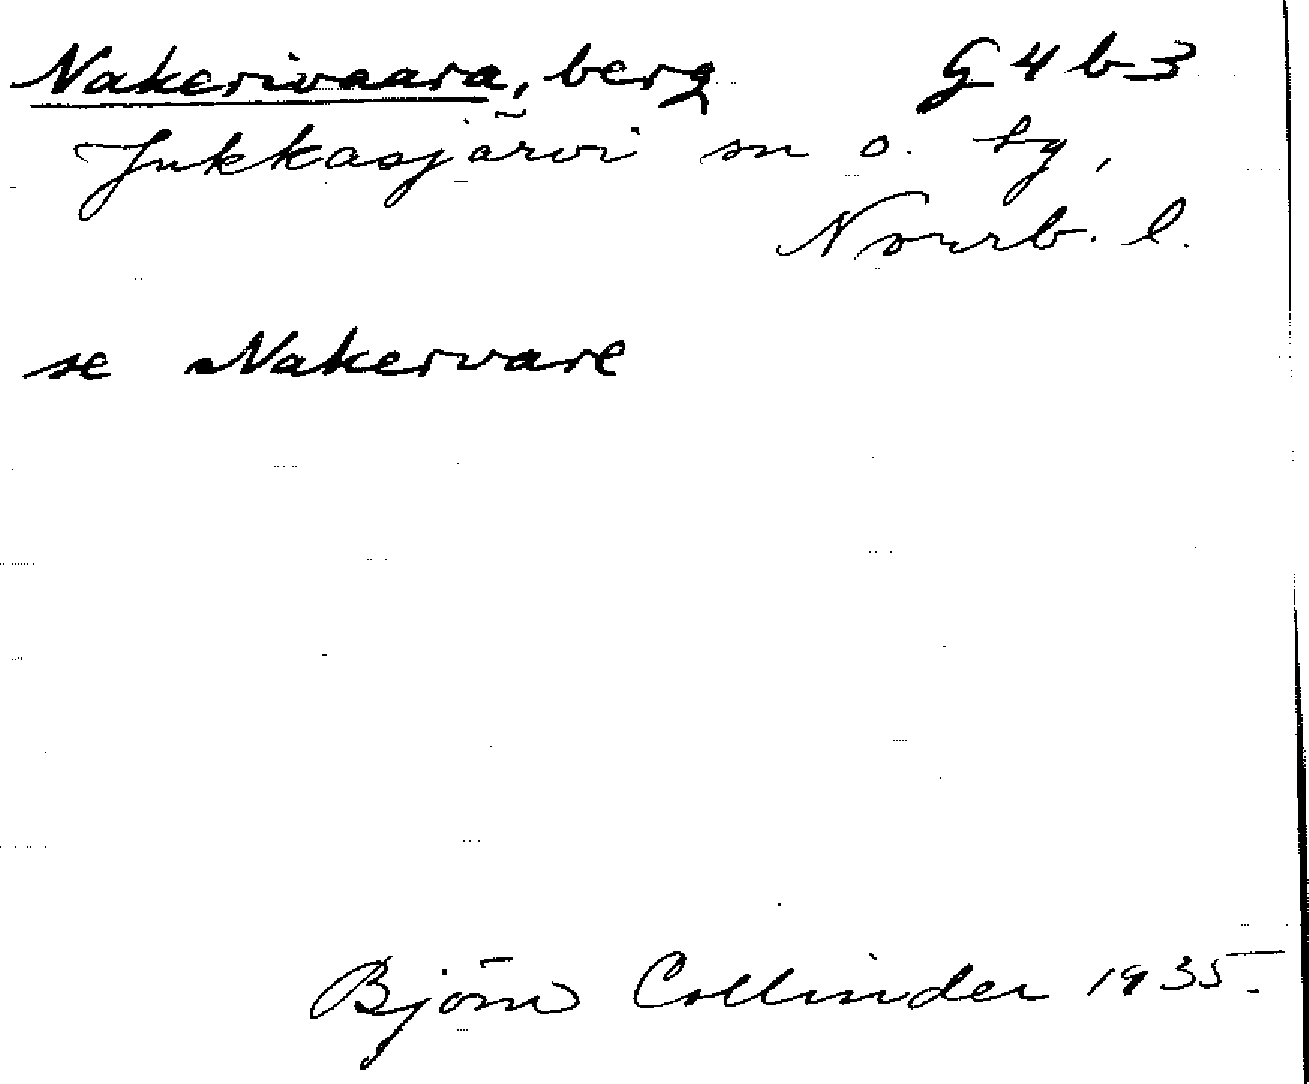 Nakerivaara, berg G 4 b 3
Jukkasjärvi sn o. tg,
Norrb. l.
se Nakervare
Björn Collinder 1935.